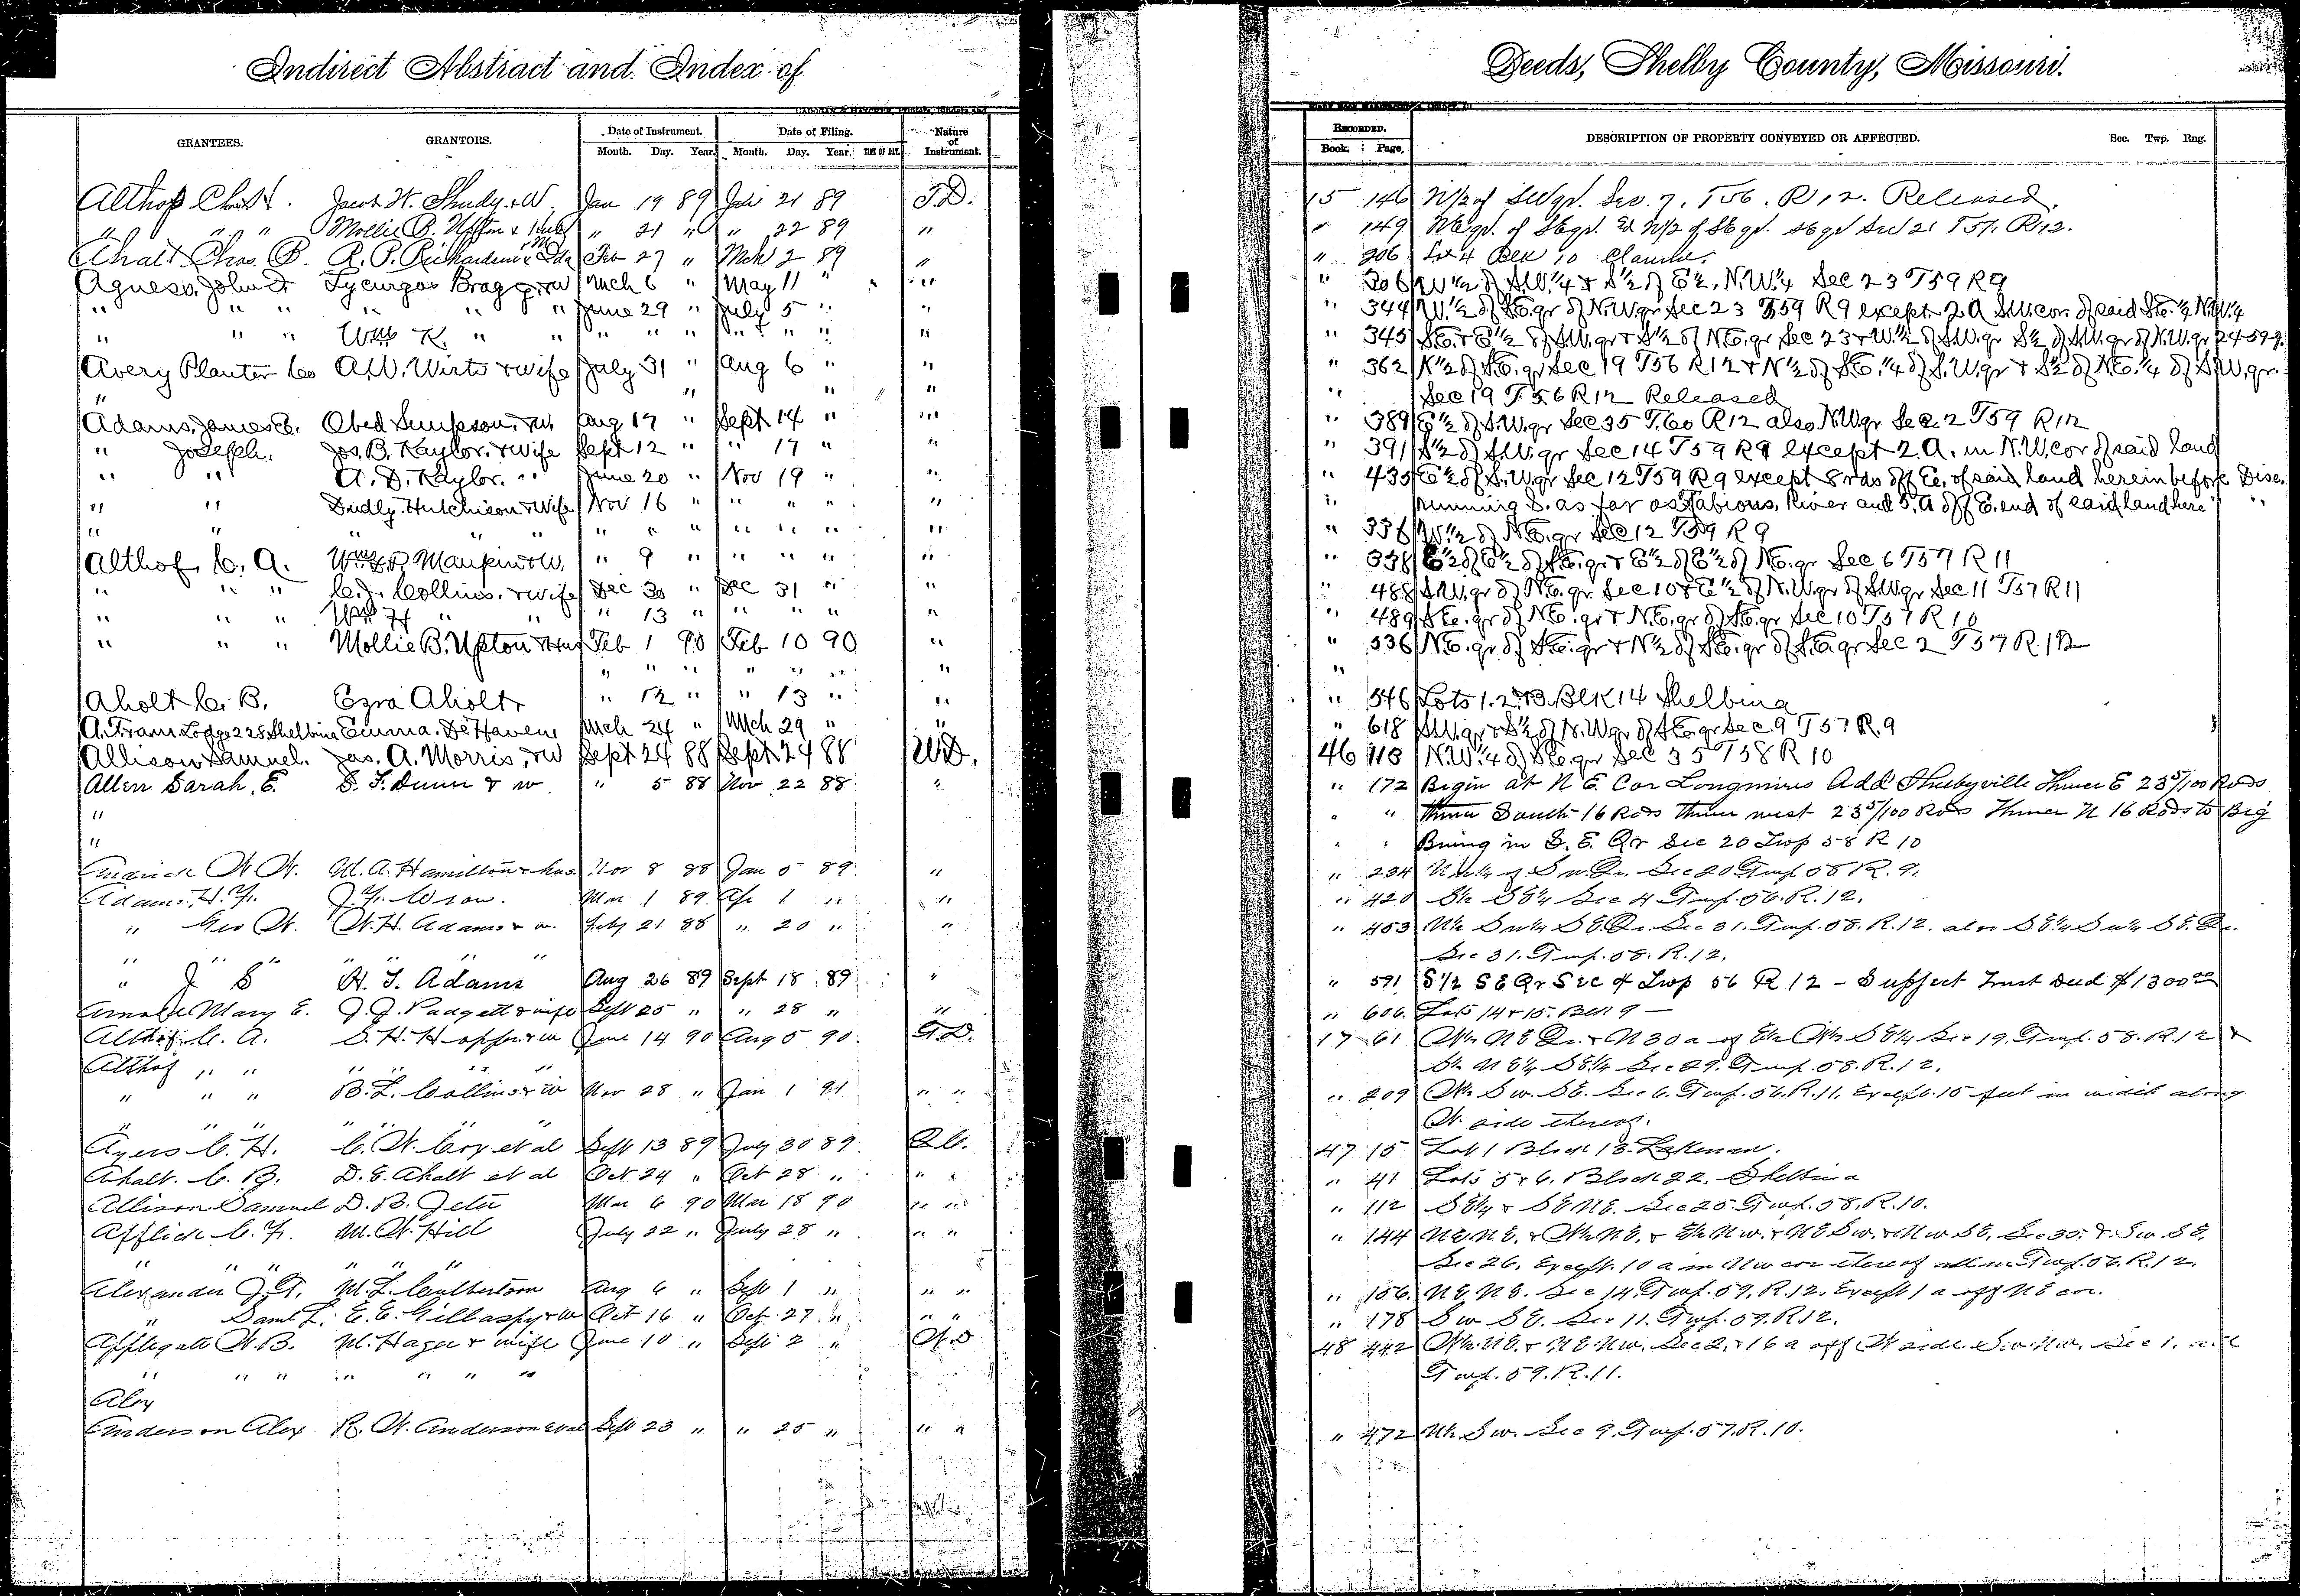 Indirect Abstract and Index of
GRANTEES. GRANTORS. Date of Instrument. Date of Filing. Nature of Instrument.
Month. Day. Year. Month. Day. Year.
Althof Chas Jacob W. Shudy & W. Jan 19 89 21 89 T.D.
" " " Mollie B. " 21 " " 22 89 "
Ahalt Chas. B. R. P. Richardson Feb 27 " Mch 2 89 "
Agness, John Lycurgas Bragg & W Mch 6 " May 11 " "
" " " " " June 29 " July 5 " "
" " " Wm K. " " " " " " " " "
Avery Planter Co A.W. Wirts & wife July 31 " Aug 6 " "
" " " "
Adams, James C. Obed Simpson & W. Aug 17 " Sept 14 " "
" Joseph. Jos. B. Kaylor. & wife Sept 12 " " 17 " "
" " A. D. Kaylor. " June 20 " Nov 19 " "
" " Dudly Hutchison & Wife Nov 16 " " " " "
" " " " " " " " " " "
Althof C. A. Maupin & W. " 9 " " " " "
" " " C. Collins. & wife Dec 30 " Dec 31 " "
" " " Wm H " " " 13 " " " " "
" " " Mollie B. Upton & Hus Feb 1 90 Feb 10 90 "
" " " " " "
Aholt C. B. Ezra Aholt " 12 " " 13 " "
A. Fram Lodge 228 Shelbina Emma De Haven Mch 24 " Mch 29 " "
Allison Samuel. Jas. A. Morris, & W Sept 24 88 Sept 24 88 W.D.
Allen Sarah, E. S. F. Dunn & w " 5 88 Nov 22 88 "
"
"
M. A. Hamilton & hus Nov 8 88 Jan 5 89 "
Adams H. Mar 1 89 Ap 1 " "
" Geo W. W. H. Adams & w. July 21 88 " 20 " "
" " " " "
" J S H. T. Adams Aug 26 89 Sept 18 89 "
Arnold Mary E. J. J. Padgett & wife Sept 25 " " 28 " "
Althof C. A. S. H. Hopper & w June 14 90 Aug 5 90 T.D.
Althof " " " " "
" " " B. L. Collins & w Nov 28 " Jan 1 91 " "
" " " " " "
Ayers C. H. C. W. Cox et al Sept 13 89 July 30 89 Q.C.
Ahalt. C. B. D. E. Ahalt et al Oct 24 " Oct 28 " " "
Allison Samuel D. B. Jeter Mar 6 90 Mar 18 90 " "
Afflick C. F. M. W. July 22 " July 28 " " "
" " " " " "
Alexander J. T. M. L. Culbertson Aug 6 " Sept 1 " " "
" Saml L. E. E. Gillaspy & W Oct 16 " Oct 27 " " "
Applegate W. B. M. Hager & wife June 10 " Sept 2 " W.D
" " " " " " "
Alex
Anderson Alex R. W. Anderson et al Sept 23 " " 25 " " "
Deeds, Shelby County, Missouri.
RECORDED. DESCRIPTION OF PROPERTY CONVEYED OR AFFECTED. Sec. Twp. Rng.
Book. Page.
15 146 N/2 of SW qr. Sec. 7. T56. R12. Released.
" 149 NE qr. of SE qr. N/2 of SE qr. SE qr Sec 21 T57. R12.
" 206 Lot 4 Blk 10 Clarence.
" 306 W 1/2 of S.W. 1/4 & S 1/2 of E 1/2, N.W. 1/4 Sec 23 T59 R9
" 344 W. 1/2 of S.E. qr of N.W. qr Sec 23 T59 R9 except 2. A S.W. cor. of said S.E. 1/4 N.W. 1/4
" 345 S.E. & E 1/2 of S.W. qr & S 1/2 of N.E. qr Sec 23 & W. 1/2 of S.W. qr S 1/2 of S.W. qr of N.W. qr 24-59-9.
" 362 N 1/2 of S.E. qr Sec 19 T56 R12 & N 1/2 of S.E. 1/4 of S.W. qr & S 1/2 of N.E. 1/4 of S.W. qr.
" Sec 19 T.56 R12 Released
" 389 E 1/2 of S.W. qr Sec 35 T.60 R12 also N.W. qr Sec. 2 T59 R12
" 391 S 1/2 of S.W. qr Sec 14 T59 R9 except 2. A. in N.W. cor of said land
" 435 E 1/2 of S.W. qr Sec 12 T59 R9 except 8 rds off E. of said land herein before Disc.
" running S. as far as Fabious, River and 5. A off E. end of said land here "
" 336 W 1/2 of N.E. qr Sec 12 T59 R9
" 338 E 1/2 of E 1/2 of S.E. qr & E 1/2 of E 1/2 of N.E. qr Sec 6 T57 R11
" 488 S.W. qr of N.E. qr. Sec 10 & E 1/2 of N.W. qr of S.W. qr Sec 11 T57 R11
" 489 S.E. qr of N.E. qr & N.E. qr of S.E. qr Sec 10 T57 R10
" 536 N.E. qr. of S.E. qr & N 1/2 of S.E. qr of S.E. qr Sec 2 T57 R.12
"
" 546 Lots 1. 2. & 3. Blk 14 Shelbina
" 618 S.W. qr & S 1/2 of N.W. qr of S.E. qr Sec. 9 T57 R.9
46 113 N.W. 1/4 of S.E. qr Sec 35 T58 R10
" 172 Begin at N E Cor Longmires Add Shelbyville Thence E 23 5/100 Rods
" " thence South 16 Rods thence west 23 5/100 Rods Thence N 16 Rods to Beg
" " Being in S. E. Qr Sec 20 Twp 58 R 10
" 234 Sec 20 Twp 58 R. 9.
" 420 S 1/2 SE 1/4 Sec 4 Twp. 56. R. 12.
" 453 N 1/2 SW 1/4 SE. Qr. Sec 31. Twp. 58. R. 12. also SE 1/4 SW 1/4 SE. Qr.
Sec 31. Twp. 58. R. 12.
" 591 S 1/2 SE Qr Sec 4 Twp 56 R 12 - Subject Trust Deed $1300 00
" 606. Lots 14 & 15. Blk 9 —
17 61 W 1/2 NE Qr. & N 30 a of E 1/2 W 1/2 SE 1/4 Sec 19. Twp. 58. R. 12 &
S 1/2 NE 1/4 SE 1/4 Sec 29. Twp. 58. R. 12.
" 209 W 1/2 SW. SE. Sec 6. Twp. 56. R. 11. Except. 15 feet in width along
W. side thereof.
47 15 Lot 1 Block 13. Lakenan.
" 41 Lots 5 & 6. Block 22. Shelbina
" 112 SE 1/4 & SE NE. Sec 25. Twp. 58. R. 10.
" 144 NE NE. & W 1/2 NE. & E 1/2 NW. & NE SW. & NW SE. Sec 35. & SW SE.
Sec 26. Except. 10 a in NW cor thereof all in Twp. 56. R. 12.
" 156. NE NE. Sec 14. Twp. 59. R. 12. Except 1 a off NE cor.
" 178 SW SE. Sec 11. Twp. 59. R12.
48 442 W 1/2 NE. & NE NW. Sec 2, & 16 a off W side SW. NW. Sec 1. all
Twp. 59. R. 11.
" 472 N 1/2 SW. Sec 9. Twp. 57. R. 10.